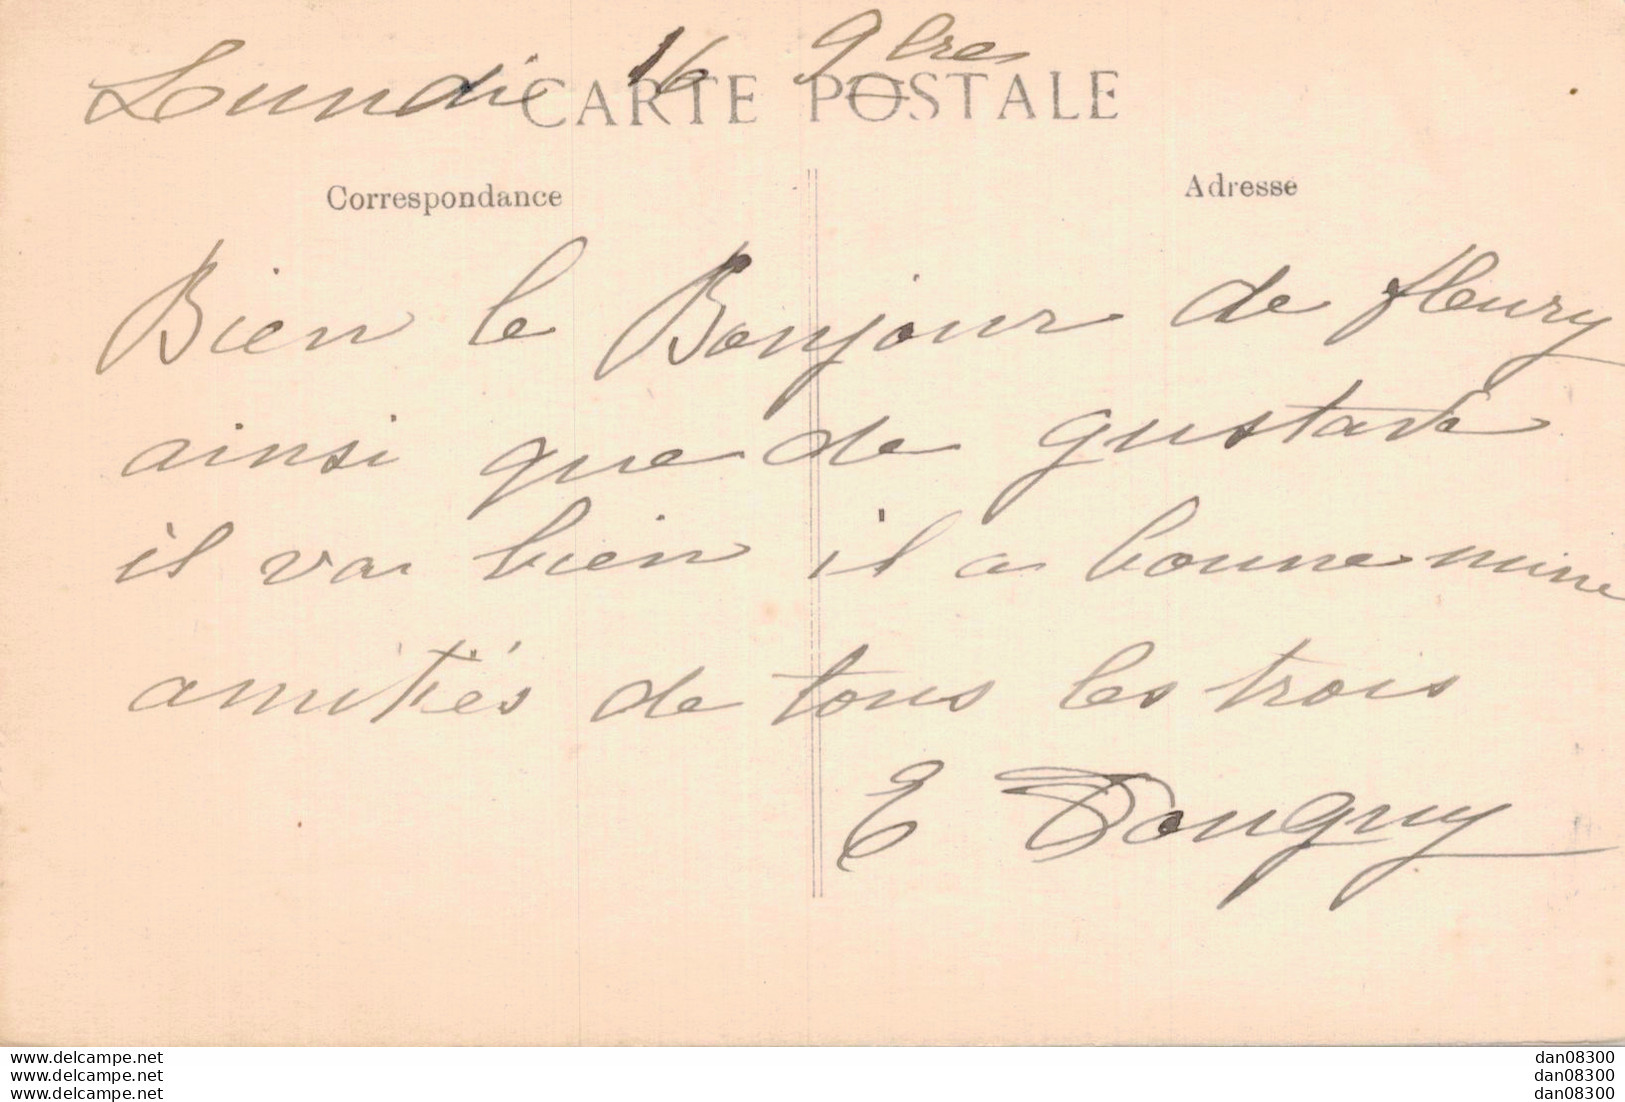 Lundi 16 9bres
CARTE POSTALE
Correspondance
Adresse
Bien le Bonjour de fleury
ainsi que de gustave
il va bien il a bonne mine
amitiés de tous les trois
E Dougny
www.delcampe.net
www.delcampe.net
www.delcampe.net
dan08300
dan08300
dan08300